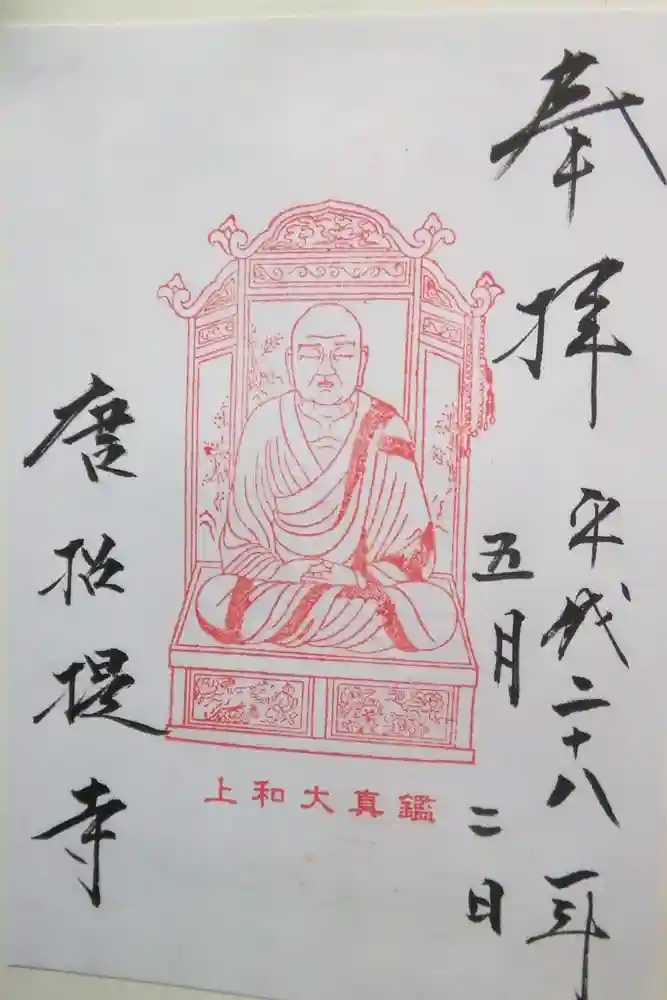 奉拝
平成二十八年
五月二日
上和大真鑑
唐招提寺